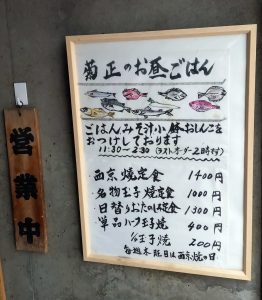 営業中
菊正のお昼ごはん
ごはんみそ汁小鉢おしんこを
おつけしております
11:30～2:30 (ラストオーダー2時まで)
西京焼定食 1400円
名物玉子焼定食 1000円
日替りおたのしみ定食 1300円
単品ハーフ玉子焼 400円
1/4玉子焼 200円
毎週木曜日は西京焼の日